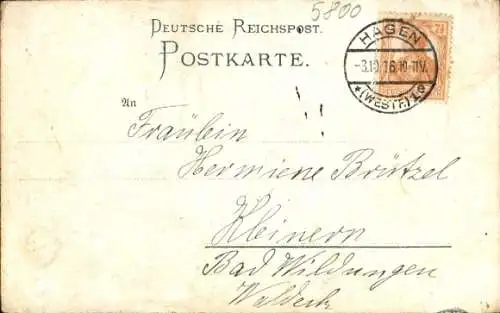 5800
DEUTSCHE REICHSPOST.
POSTKARTE.
HAGEN
-3.10.16.10-11V.
*(WESTF.)1g
7½
An
Fräulein
Hermiene Brützel
Kleinern
Bad Wildungen
Waldeck